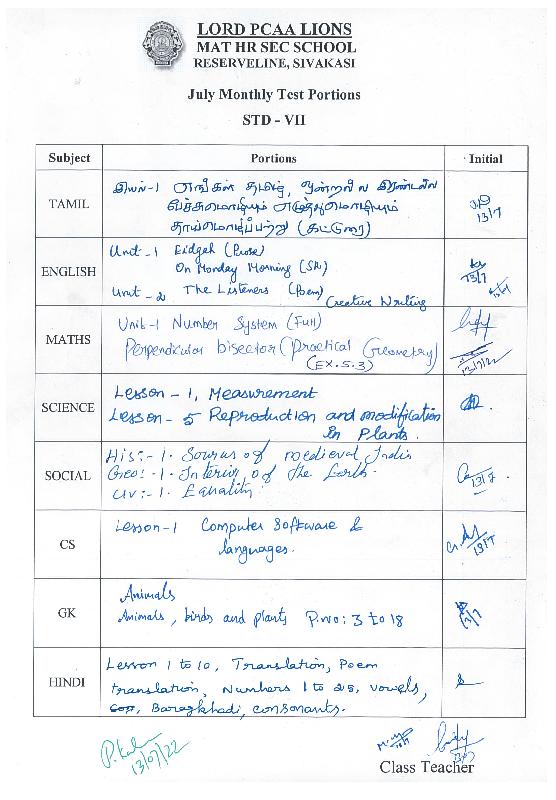 LORD PCAA LIONS
MAT HR SEC SCHOOL
RESERVELINE, SIVAKASI
July Monthly Test Portions
STD - VII
Subject Portions Initial
TAMIL
இயல்-1 எங்கள் தமிழ், ஒன்றல்ல இரண்டல்ல
பேச்சுமொழியும் எழுத்துமொழியும்
தாய்மொழிப்பற்று (கட்டுரை)
13/7
ENGLISH
Unit-1 Eidgah (Prose)
On Monday Morning (SR)
Unit-2 The Listeners (Poem)
Creative Writing
13/7
MATHS
Unit-1 Number System (Full)
Perpendicular bisector (Practical Geometry)
(EX.5.3)
13/7/22
SCIENCE
Lesson - 1, Measurement
Lesson - 5 Reproduction and modification
in Plants.
SOCIAL
His:-1. Sources of medieval India
Geo:-1. Interior of the Earth.
Civ:-1. Equality.
13/7.
CS
Lesson-1 Computer Software &
languages.
13/7
GK
Animals
Animals, birds and plants P.no: 3 to 18
HINDI
Lesson 1 to 10, Translation, Poem
translation, Numbers 1 to 25, vowels,
Baragkhadi, consonants.
13/07/22
Class Teacher